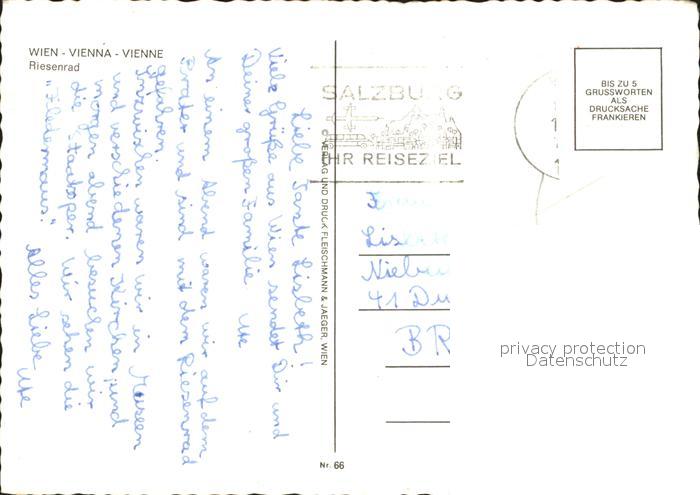 WIEN - VIENNA - VIENNE
Riesenrad
Liebe Tante Lisbeth!
Viele Grüße aus Wien sendet Dir und
Deiner großen Familie Ute
An einem Abend waren wir auf dem
Prater und sind mit dem Riesenrad
gefahren.
Inzwischen waren wir in Museen
und verschiedenen Kirchen und
morgen abend besuchen wir
die Staatsoper. Wir sehen die
"Fledermaus."
Alles Liebe
Ute
VERLAG UND DRUCK FLEISCHMANN & JAEGER, WIEN
Nr. 66
SALZBURG
IHR REISEZIEL
BIS ZU 5
GRUSSWORTEN
ALS
DRUCKSACHE
FRANKIEREN
41 Du
BR
privacy protection
Datenschutz